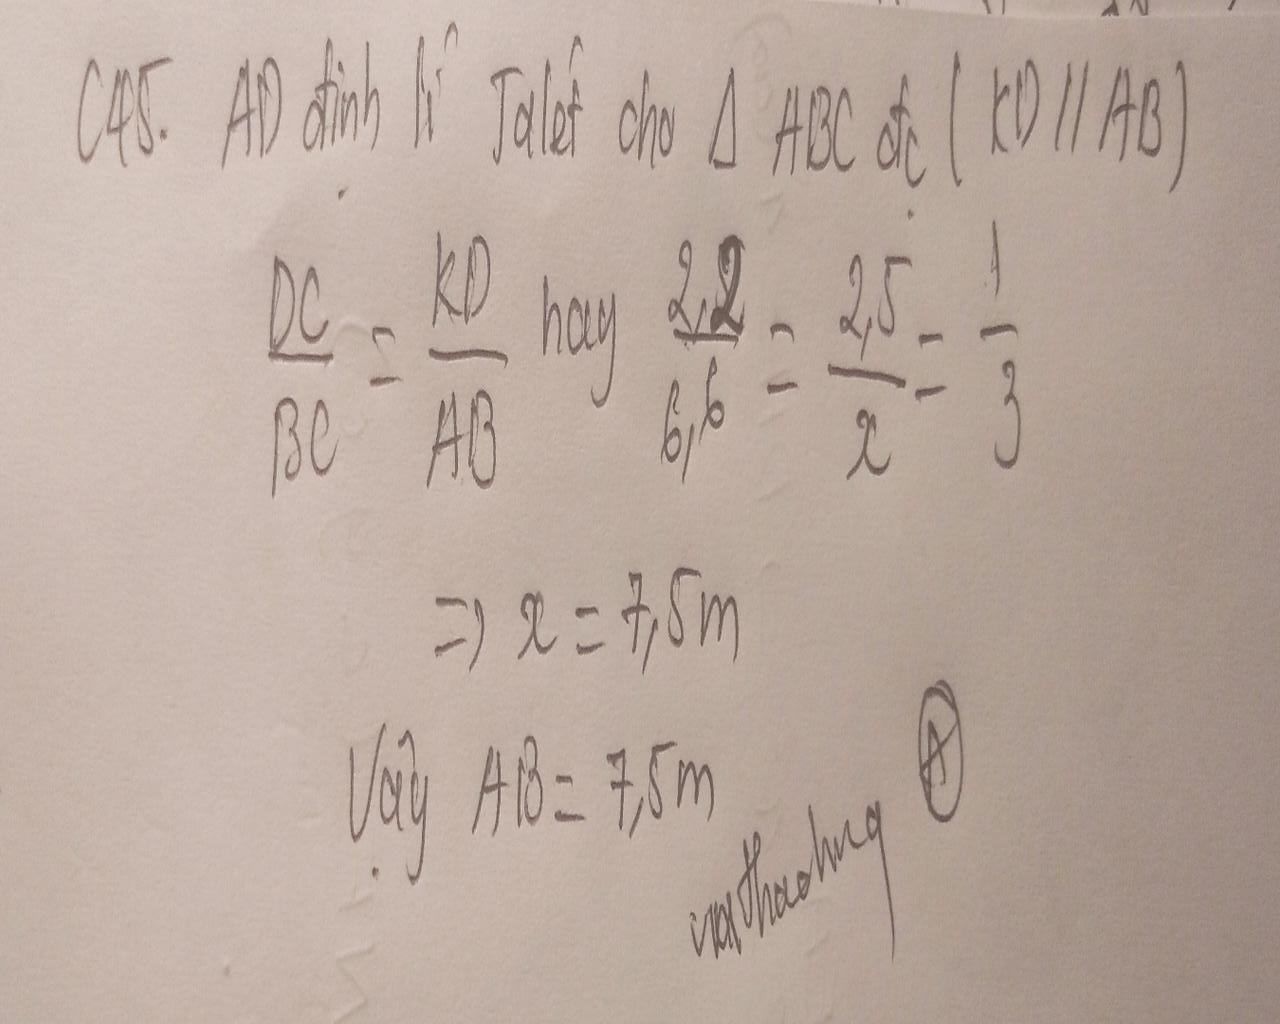 C45. AD định lí Talét cho Δ ABC đc ( KD // AB )
DC/BC = KD/AB hay 2,2/6,6 = 2,5/x = 1/3
=> x = 7,5m
Vậy AB = 7,5m
A